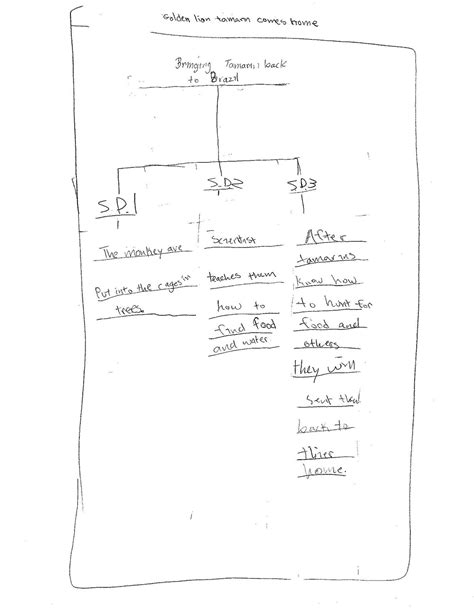 Golden lion tamarn comes home
Bringing Tamarn back
to Brazil
S.D.1
S.D2
S.D3
The monkey are
Put into the cages in
trees
Scientist
teaches them
how to
find food
and water
After
tamarins
know how
to hunt for
food and
others
they will
Sent them
back to
thier
home.